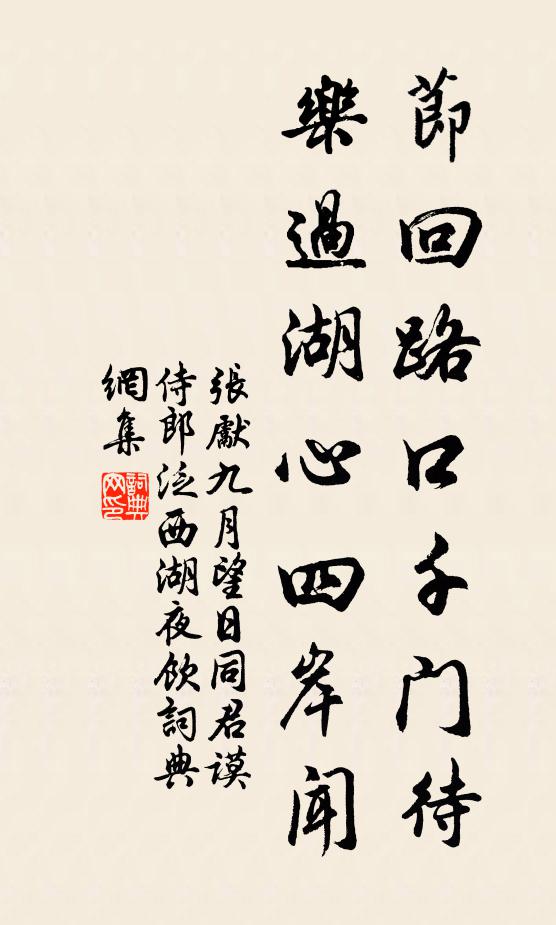 節回路口千門待
樂過湖心四岸聞
張獻九月望日同君謨
侍郎泛西湖夜飲詞典
網集
詞典
网印